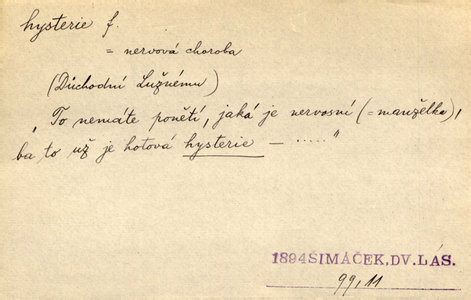 hysterie f.
= nervová choroba
(Důchodní Lužnému)
„To nemáte ponětí, jaká je nervosní (= manželka),
ba to už je hotová hysterie — ....."
1894 ŠIMÁČEK, DV. LÁS.
99, 11